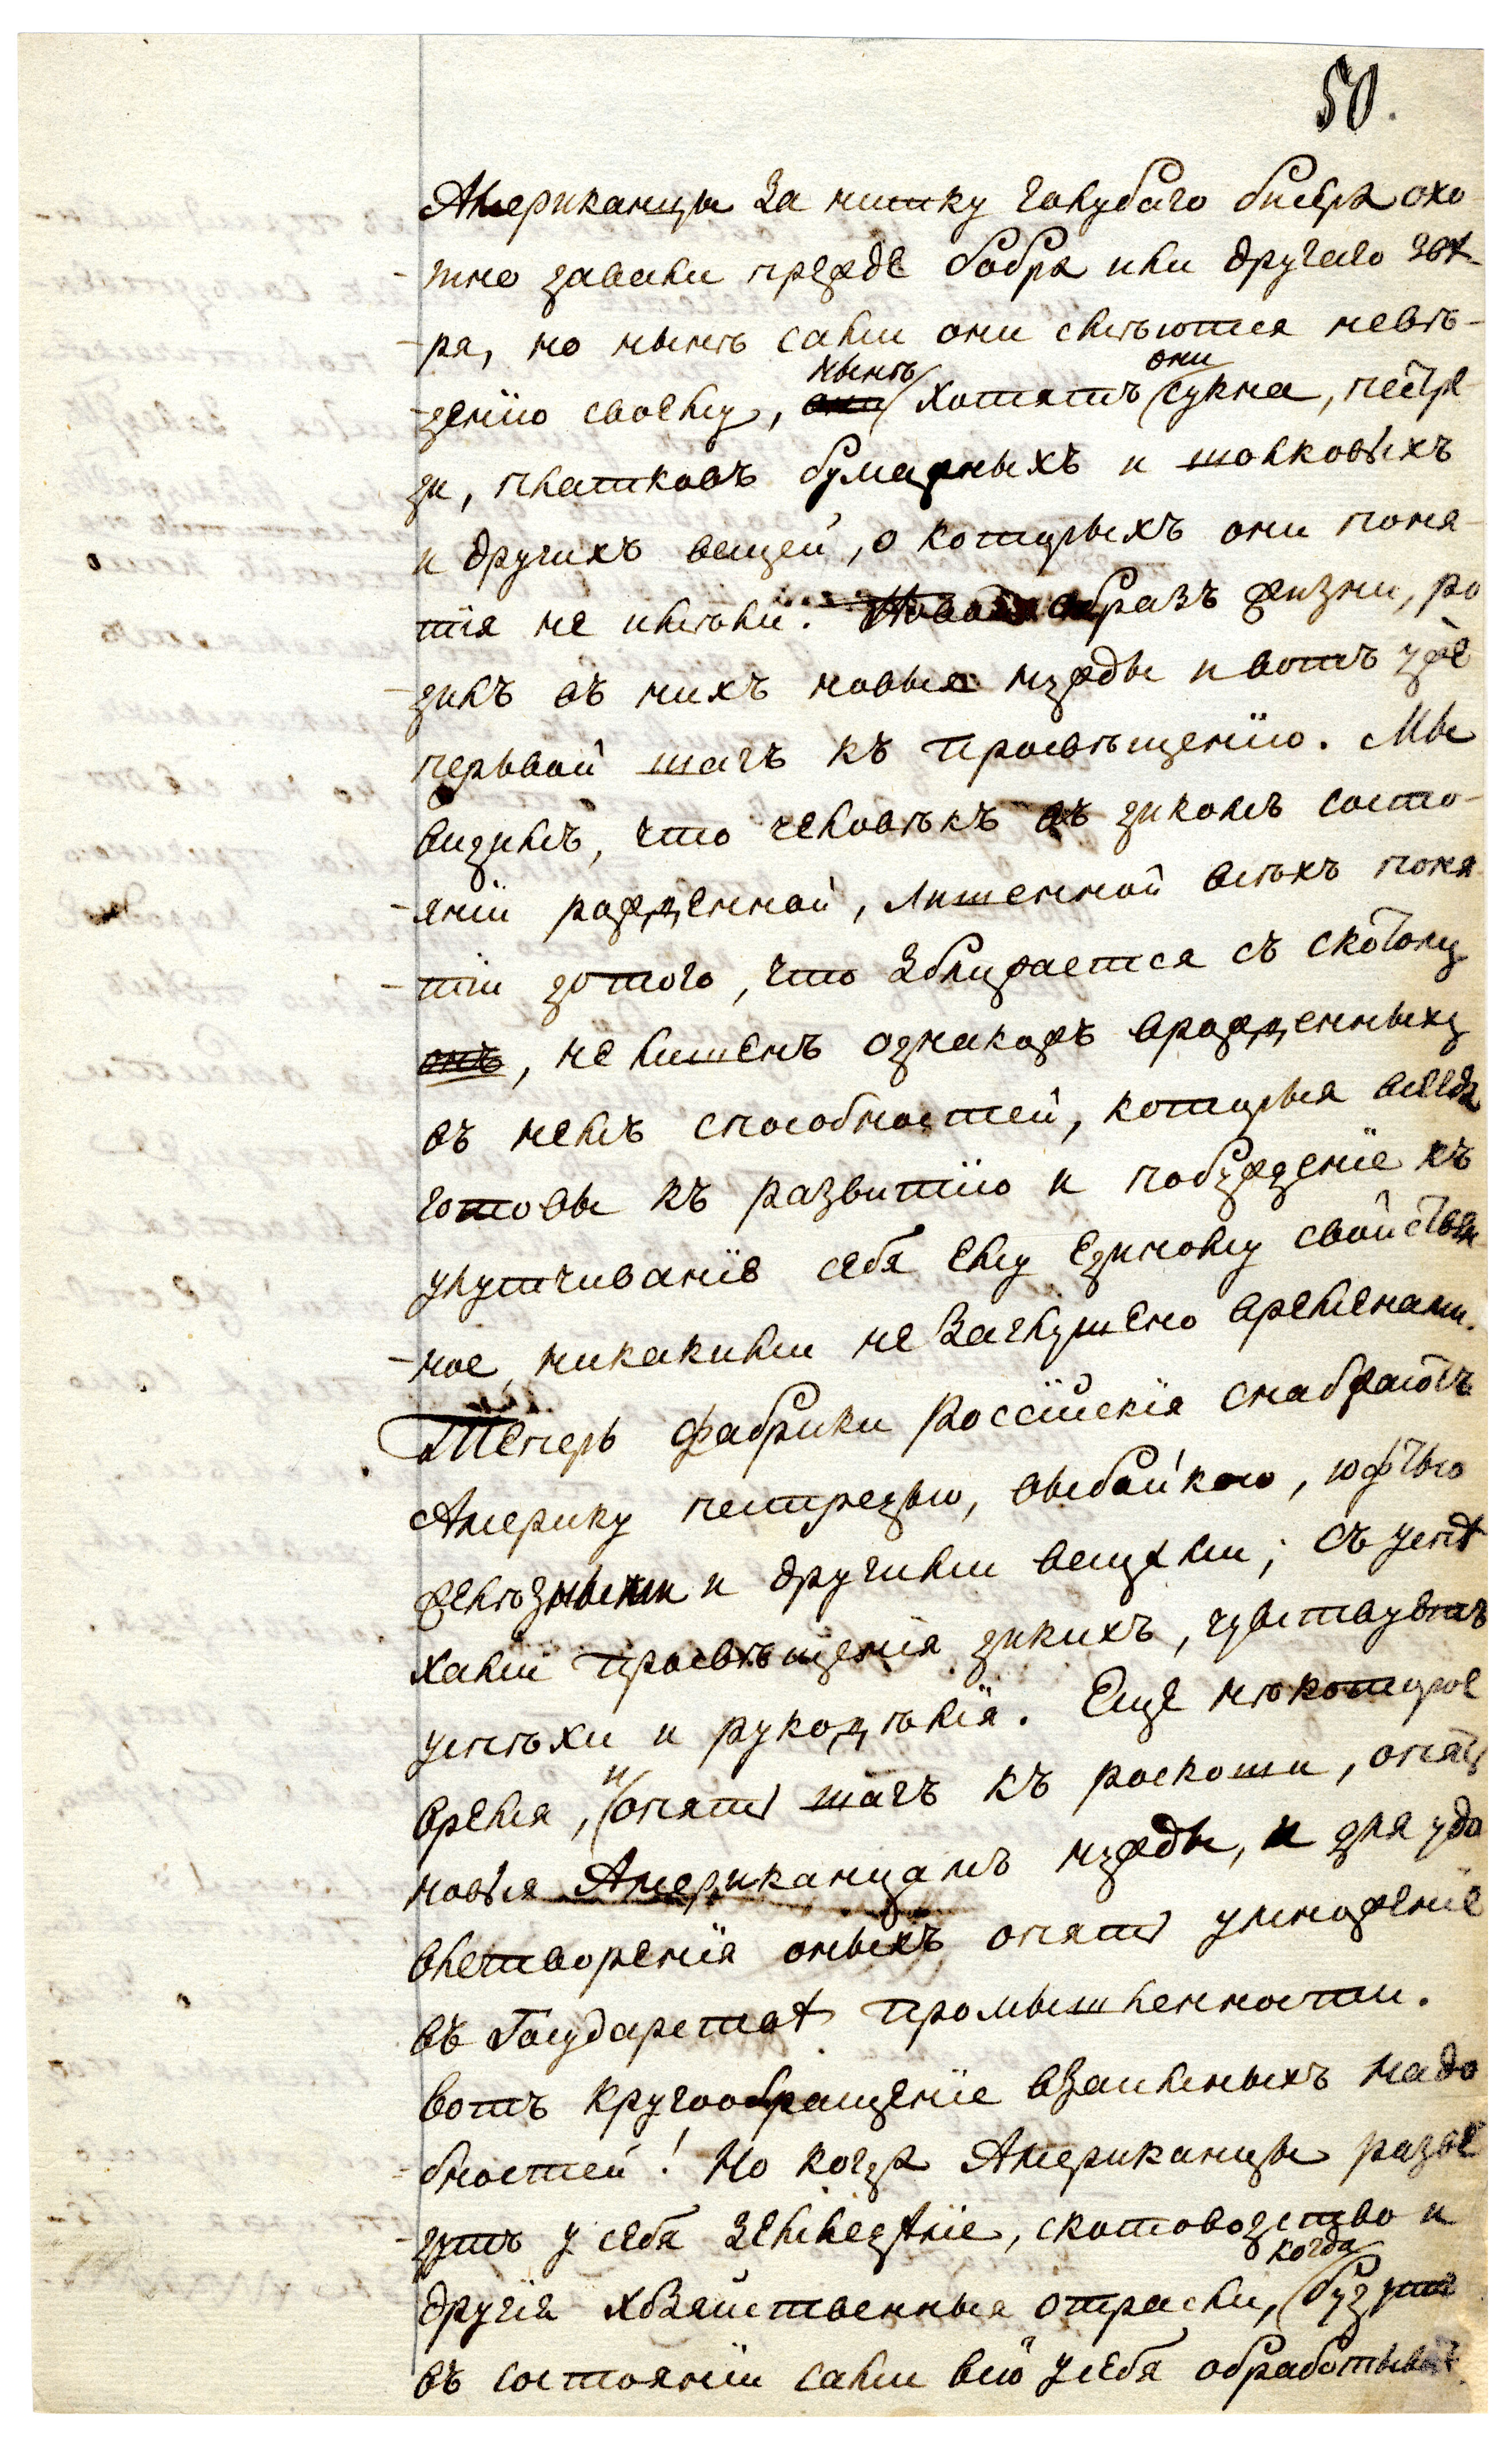 50.
Американцы за нитку голубаго бисера охо
-тно давали прежде бобра или другаго звѣ-
-ря, но нынѣ сами они смѣются невѣ-
нынѣ они
-денїю своему, они хотятъ сукна, пестре
ди, платковъ бумажныхъ и шолковыхъ
и другихъ вещей, о которыхъ они поня-
тїя не имѣли. Новой образъ жизни, ро
-дилъ въ нихъ новыя нужды и вотъ уже
первой шагъ къ просвѣщенїю. Мы
видимъ, что человѣкъ въ дикомъ состо-
-янїи рожденной, лишенной всѣхъ поня
-тїи до того, что зближается съ скотомъ
онъ, не лишенъ однакожъ врожденныхъ
въ немъ способностей, которыя всегда
готовы къ развитїю и побужденїе къ
улутчиванїе себя ему единому свойствен
-ное, никакими не заглушено временами.
Теперь фабрики Россїйскїя снабжаютъ
Америку пестредью, выбойкою, юфтью
желѣзными и другими вещами; съ успѣ
хами просвѣщенїя дикихъ, чувствуютъ
успѣхи и рукодѣлїя. Еще нѣкоторое
и
время, опять шагъ къ роскоши, опять
новыя Американцамъ нужды, и для удо
влетворенїя оныхъ, опять умноженїе
въ Государствѣ промышленности.
Вотъ кругообращенїе взаимныхъ надо
-бностей! Но когда Американцы разве
-дутъ у себя земледѣлїе, скотоводство и
когда
другїя хозяйственныя отрасли, будутъ
въ состоянїи сами всю у себя обработывать